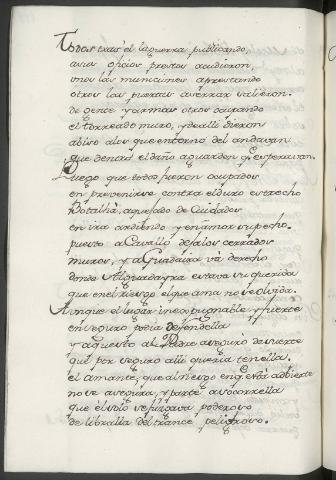 Todos tras él la guerra publicando,
a sus oficios prestos acudieron,
unos las municiones aprestando
otros las puertas a cerrar salieron.
de gente y armas otros ocupando
el torreado muro, y de allí dieron
abiso a los que en torno del andavan
que de noch el daño aguarden q. esperavan.
Luego que todos fueron ocupados
en prevenirse contra el duro estrecho
Botalhà, aquejado de Cuidados
en ira ardiendo y en amor su pecho.
puesto a Cavallo deja los cerrados
muros, y a Guadaira và derecho
donde Alguadayra estava su querida
que en el riesgo el que ama no se olvida.
Aunque el lugar inexpugnable y fuerte
en seguro podia defendella
y aquesto al Padre aseguro de suerte
que por seguro alli queria tenella.
el amante, que al riesgo en q. està advierte
no se asegura, y parte a socorrella
que el solo se juzgava poderoso
de libralla del trance peligroso.